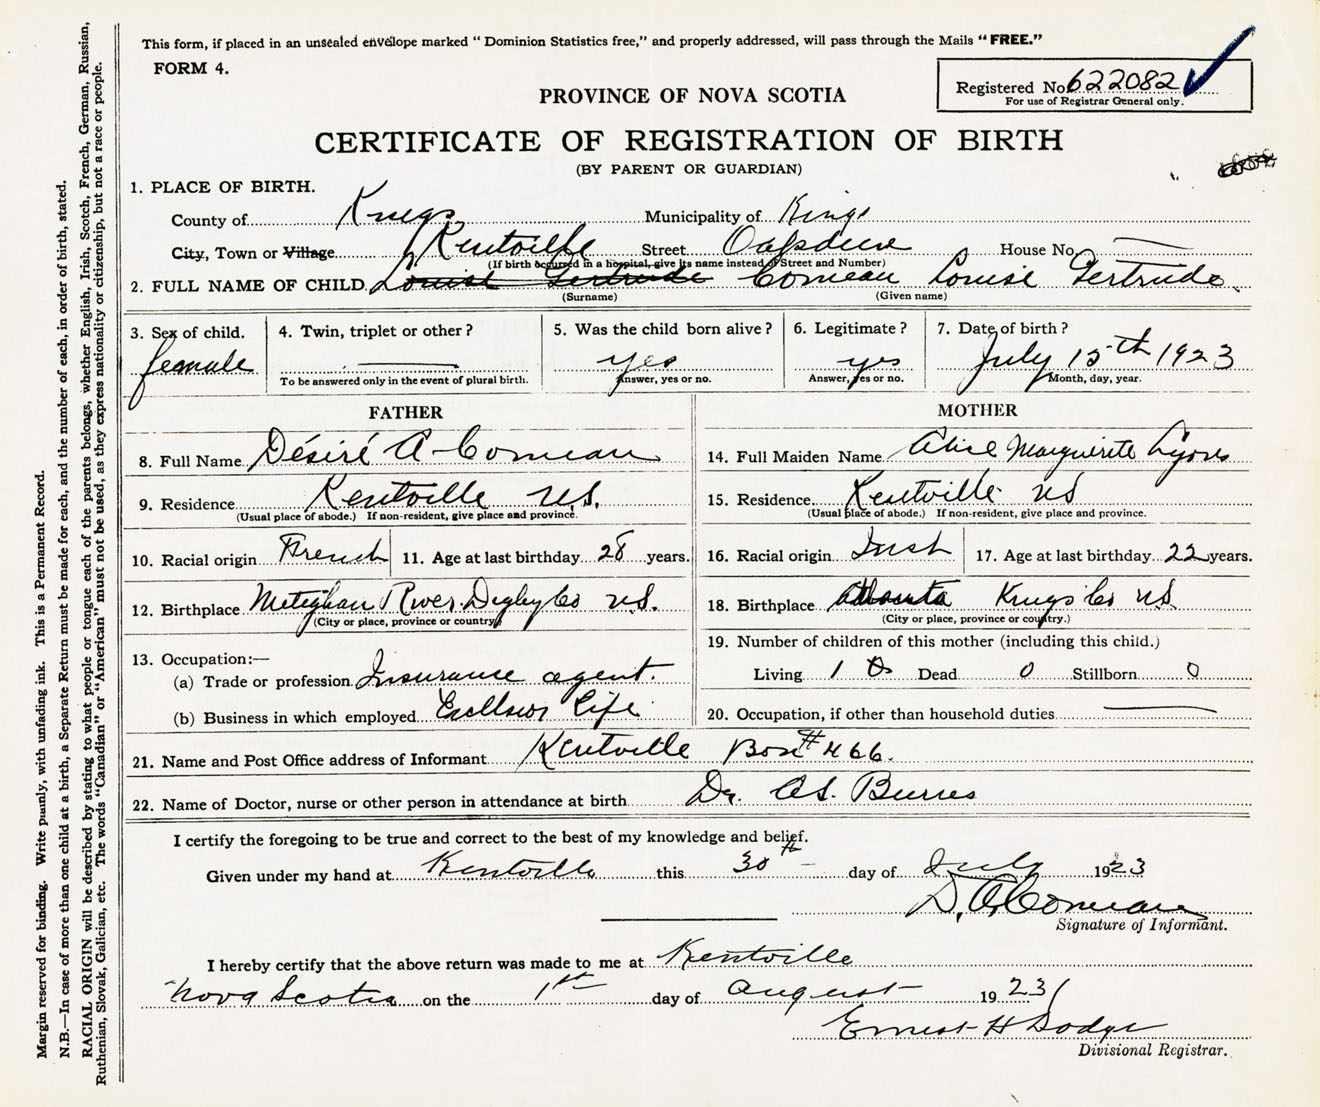 This form, if placed in an unsealed envelope marked "Dominion Statistics free," and properly addressed, will pass through the Mails "FREE."
FORM 4.
Registered No. 622082
For use of Registrar General only.
PROVINCE OF NOVA SCOTIA
CERTIFICATE OF REGISTRATION OF BIRTH
(BY PARENT OR GUARDIAN)
1. PLACE OF BIRTH.
County of Kings Municipality of Kings
City, Town or Village Kentville Street Oakdene House No. —
(If birth occurred in a hospital, give its name instead of Street and Number)
2. FULL NAME OF CHILD Louise Gertrude Comeau Louise Gertrude
(Surname) (Given name)
3. Sex of child. 4. Twin, triplet or other? 5. Was the child born alive? 6. Legitimate? 7. Date of birth?
female — yes yes July 15th 1923
To be answered only in the event of plural birth. Answer, yes or no. Answer, yes or no. Month, day, year.
FATHER MOTHER
8. Full Name Désiré A Comeau 14. Full Maiden Name Alice Marguirite Lyons
9. Residence Kentville N.S. 15. Residence Kentville NS
(Usual place of abode.) If non-resident, give place and province. (Usual place of abode.) If non-resident, give place and province.
10. Racial origin French 11. Age at last birthday 28 years. 16. Racial origin Irish 17. Age at last birthday 22 years.
12. Birthplace Meteghan River Digby Co N.S. 18. Birthplace Atlanta Kings Co NS
(City or place, province or country) (City or place, province or country.)
13. Occupation:— 19. Number of children of this mother (including this child.)
(a) Trade or profession Insurance agent. Living 1 Dead 0 Stillborn 0
(b) Business in which employed Excelsior Life 20. Occupation, if other than household duties —
21. Name and Post Office address of Informant Kentville Box # 466.
22. Name of Doctor, nurse or other person in attendance at birth Dr. A.S. Burns
I certify the foregoing to be true and correct to the best of my knowledge and belief.
Given under my hand at Kentville this 30th day of July 1923
D. A. Comeau
Signature of Informant.
I hereby certify that the above return was made to me at Kentville
Nova Scotia on the 1st day of August 1923
Ernest H Dodge
Divisional Registrar.
Margin reserved for binding. Write plainly, with unfading ink. This is a Permanent Record.
N.B.—In case of more than one child at a birth, a Separate Return must be made for each, and the number of each, in order of birth, stated.
RACIAL ORIGIN will be described by stating to what people or tongue each of the parents belongs, whether English, Irish, Scotch, French, German, Russian,
Ruthenian, Slovak, Galician, etc. The words "Canadian" or "American" must not be used, as they express nationality or citizenship, but not a race or people.